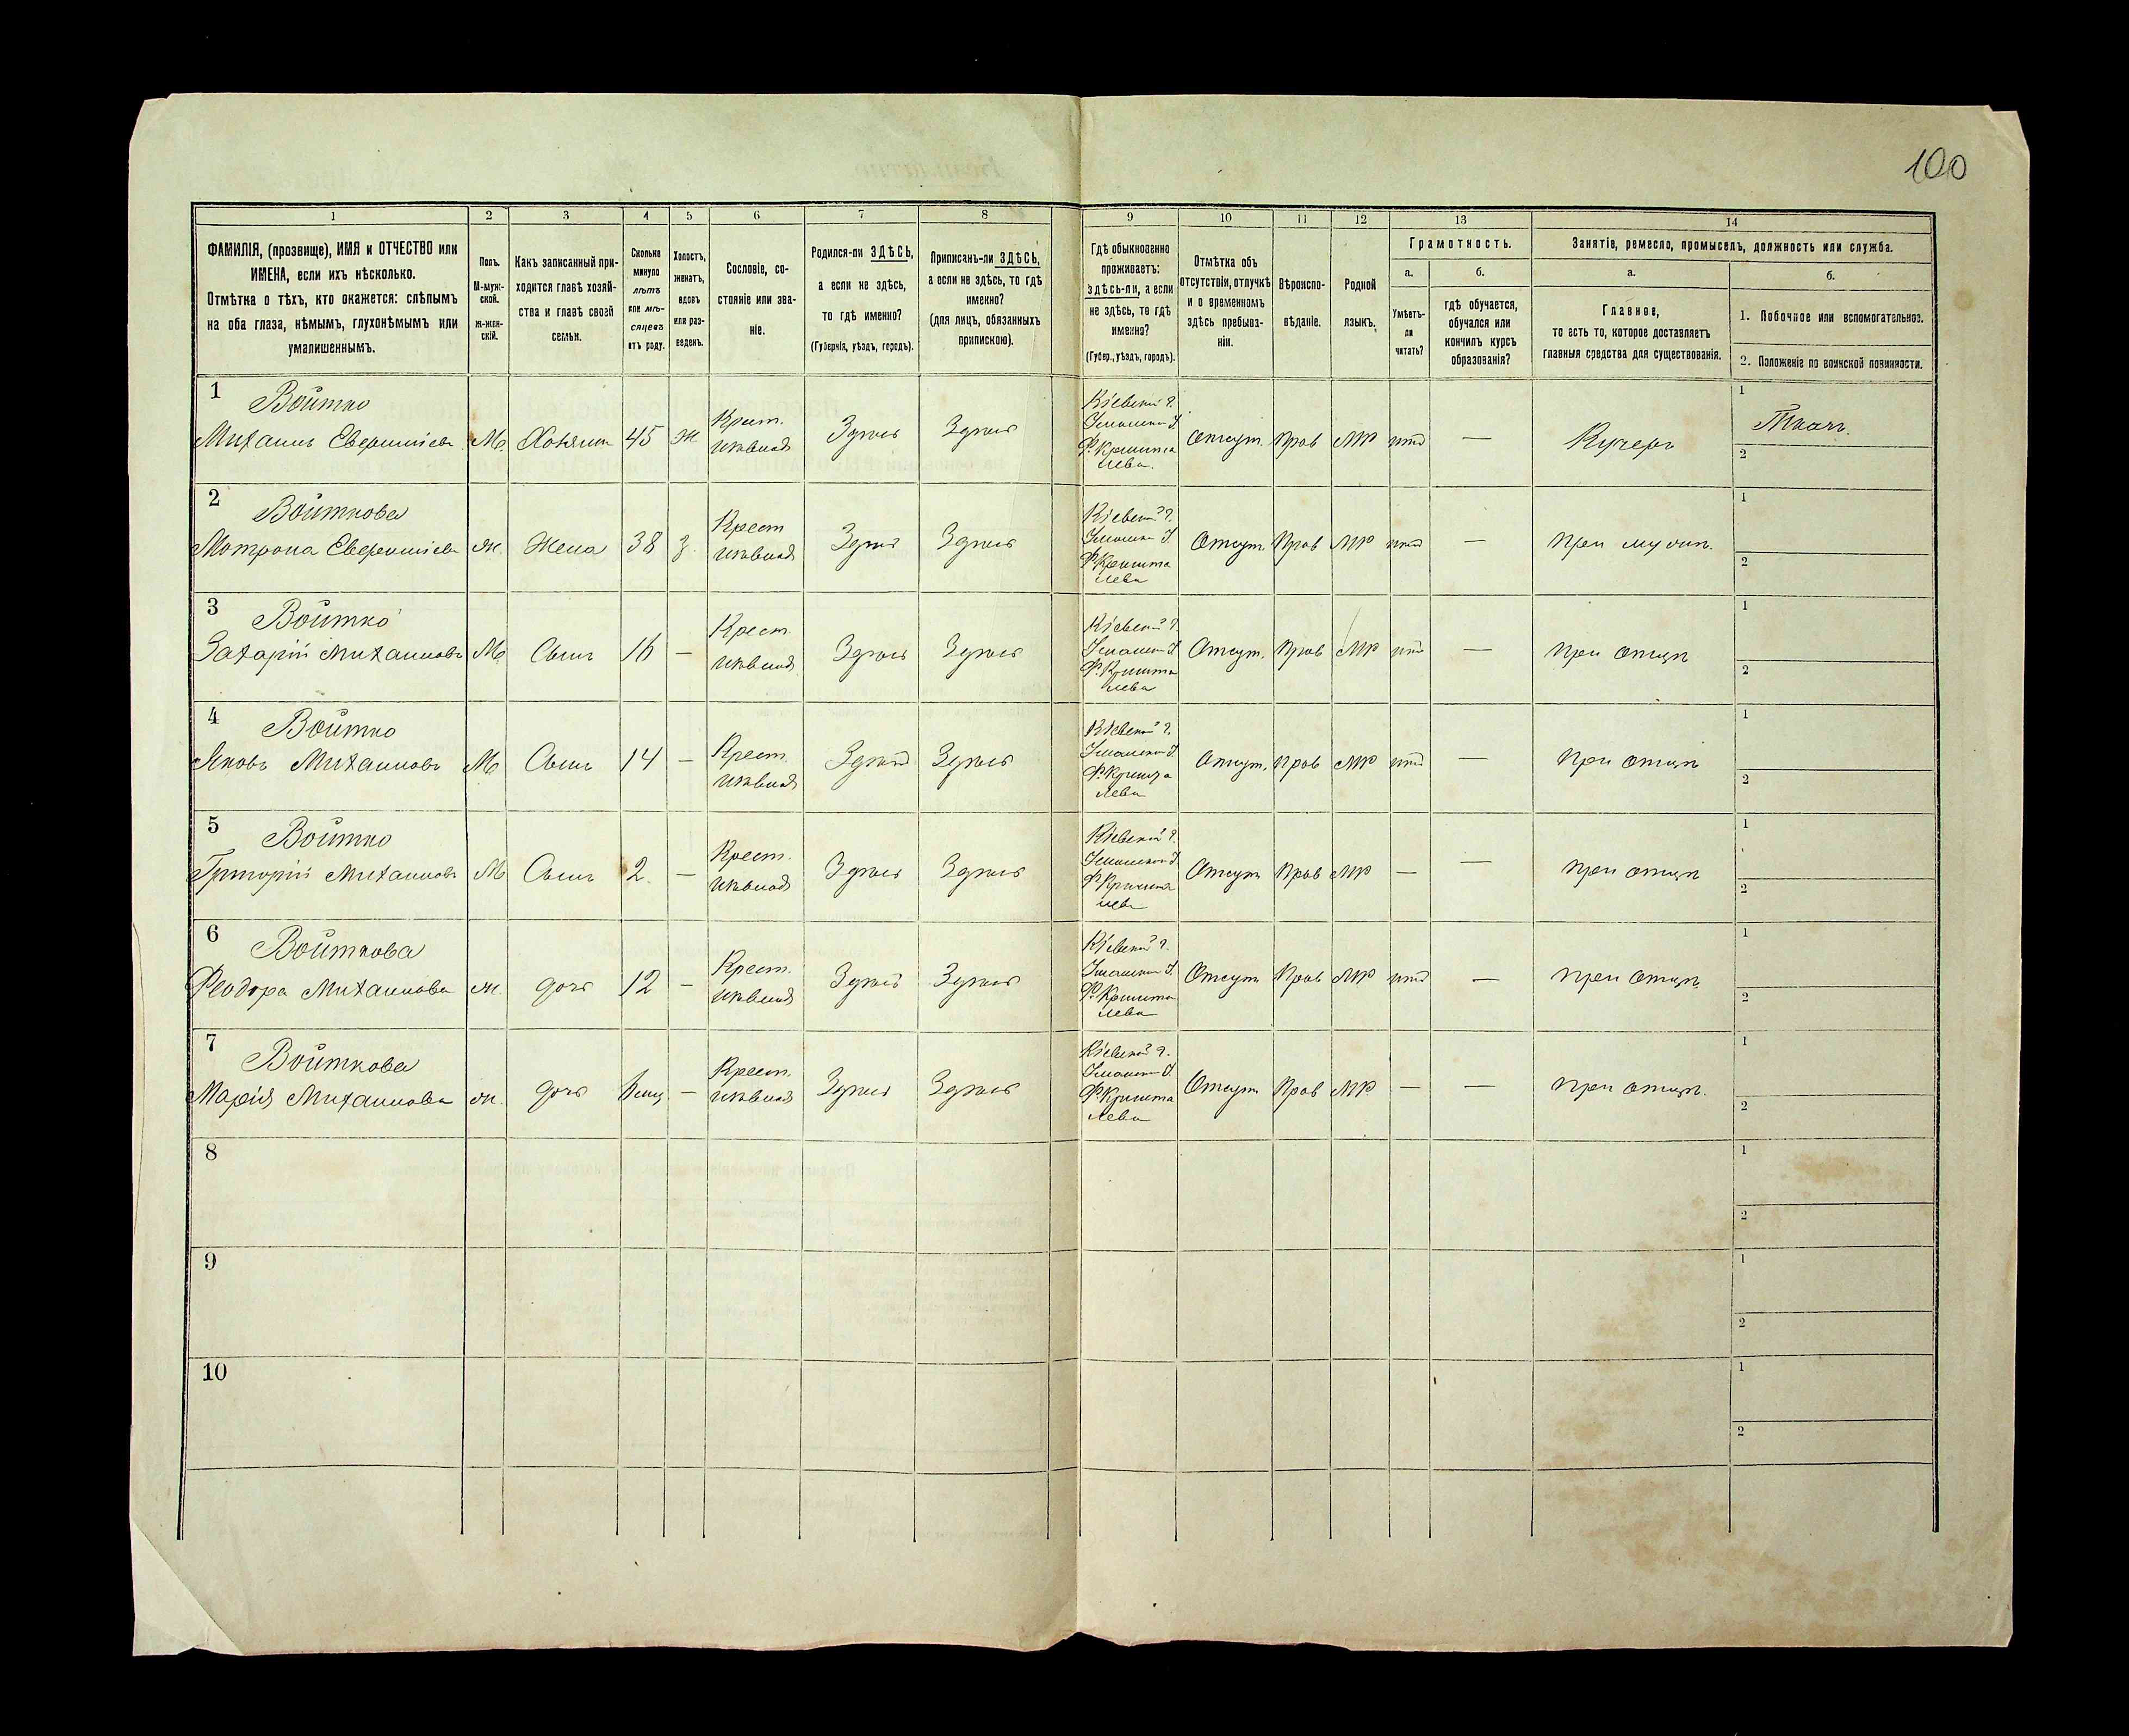 100
1 2 3 4 5 6 7 8 9 10 11 12 13 14
ФАМИЛІЯ, (прозвище), ИМЯ и ОТЧЕСТВО или
ИМЕНА, если ихъ нѣсколько.
Отмѣтка о тѣхъ, кто окажется: слѣпымъ
на оба глаза, нѣмымъ, глухонѣмымъ или
умалишеннымъ.
Полъ.
М-муж-
ской.
ж-жен-
скій.
Какъ записанный при-
ходится главѣ хозяй-
ства и главѣ своей
семьи.
Сколько
минуло
лѣтъ
или мѣ-
сяцевъ
отъ роду.
Холостъ,
женатъ,
вдовъ
или раз-
веденъ.
Сословіе, со-
стояніе или зва-
ніе.
Родился-ли ЗДѢСЬ,
а если не здѣсь,
то гдѣ именно?
(Губернія, уѣздъ, городъ).
Приписанъ-ли ЗДѢСЬ,
а если не здѣсь, то гдѣ
именно?
(для лицъ, обязанныхъ
припискою).
Гдѣ обыкновенно
проживаетъ:
здѣсь-ли, а если
не здѣсь, то гдѣ
именно?
(Губер., уѣздъ, городъ).
Отмѣтка объ
отсутствіи, отлучкѣ
и о временномъ
здѣсь пребыва-
ніи.
Вѣроиспо-
вѣданіе.
Родной
языкъ.
Грамотность.
а.
Умѣетъ-
ли
читать?
б.
гдѣ обучается,
обучался или
кончилъ курсъ
образованія?
Занятіе, ремесло, промыселъ, должность или служба.
а.
Главное,
то есть то, которое доставляетъ
главныя средства для существованія.
б.
1. Побочное или вспомогательное.
2. Положеніе по воинской повинности.
1 Войтко
Михаилъ М Хозяинъ 45 ж Крест. Здѣсь Здѣсь Кіевской г. Отсут. Прав МР нѣтъ — Кучеръ
1 Ткачъ.
2
2 Войткова
Мотрона ж. Жена 38 з. Крест Здѣсь Здѣсь Кіевской г. Отсут. Прав МР нѣтъ — При мужѣ.
1
2
3 Войтко
Захарій Михаиловъ М Сынъ 16 — Крест. Здѣсь Здѣсь Кіевской г. Отсут. Прав МР нѣтъ — При отцѣ
1
2
4 Войтко
Яковъ Михаиловъ М Сынъ 14 — Крест. Здѣсь Здѣсь Кіевской г. Отсут. Прав МР нѣтъ — При отцѣ
1
2
5 Войтко
Григорій Михаиловъ М Сынъ 2 — Крест. Здѣсь Здѣсь Кіевской г. Отсут Прав МР — — При отцѣ
1
2
6 Войткова
Феодора Михаилова ж. дочь 12 — Крест. Здѣсь Здѣсь Кіевской г. Отсут Прав МР нѣтъ — При отцѣ
1
2
7 Войткова
Марія Михаилова ж. дочь — Крест. Здѣсь Здѣсь Кіевской г. Отсут Прав МР — — При отцѣ.
1
2
8
1
2
9
1
2
10
1
2